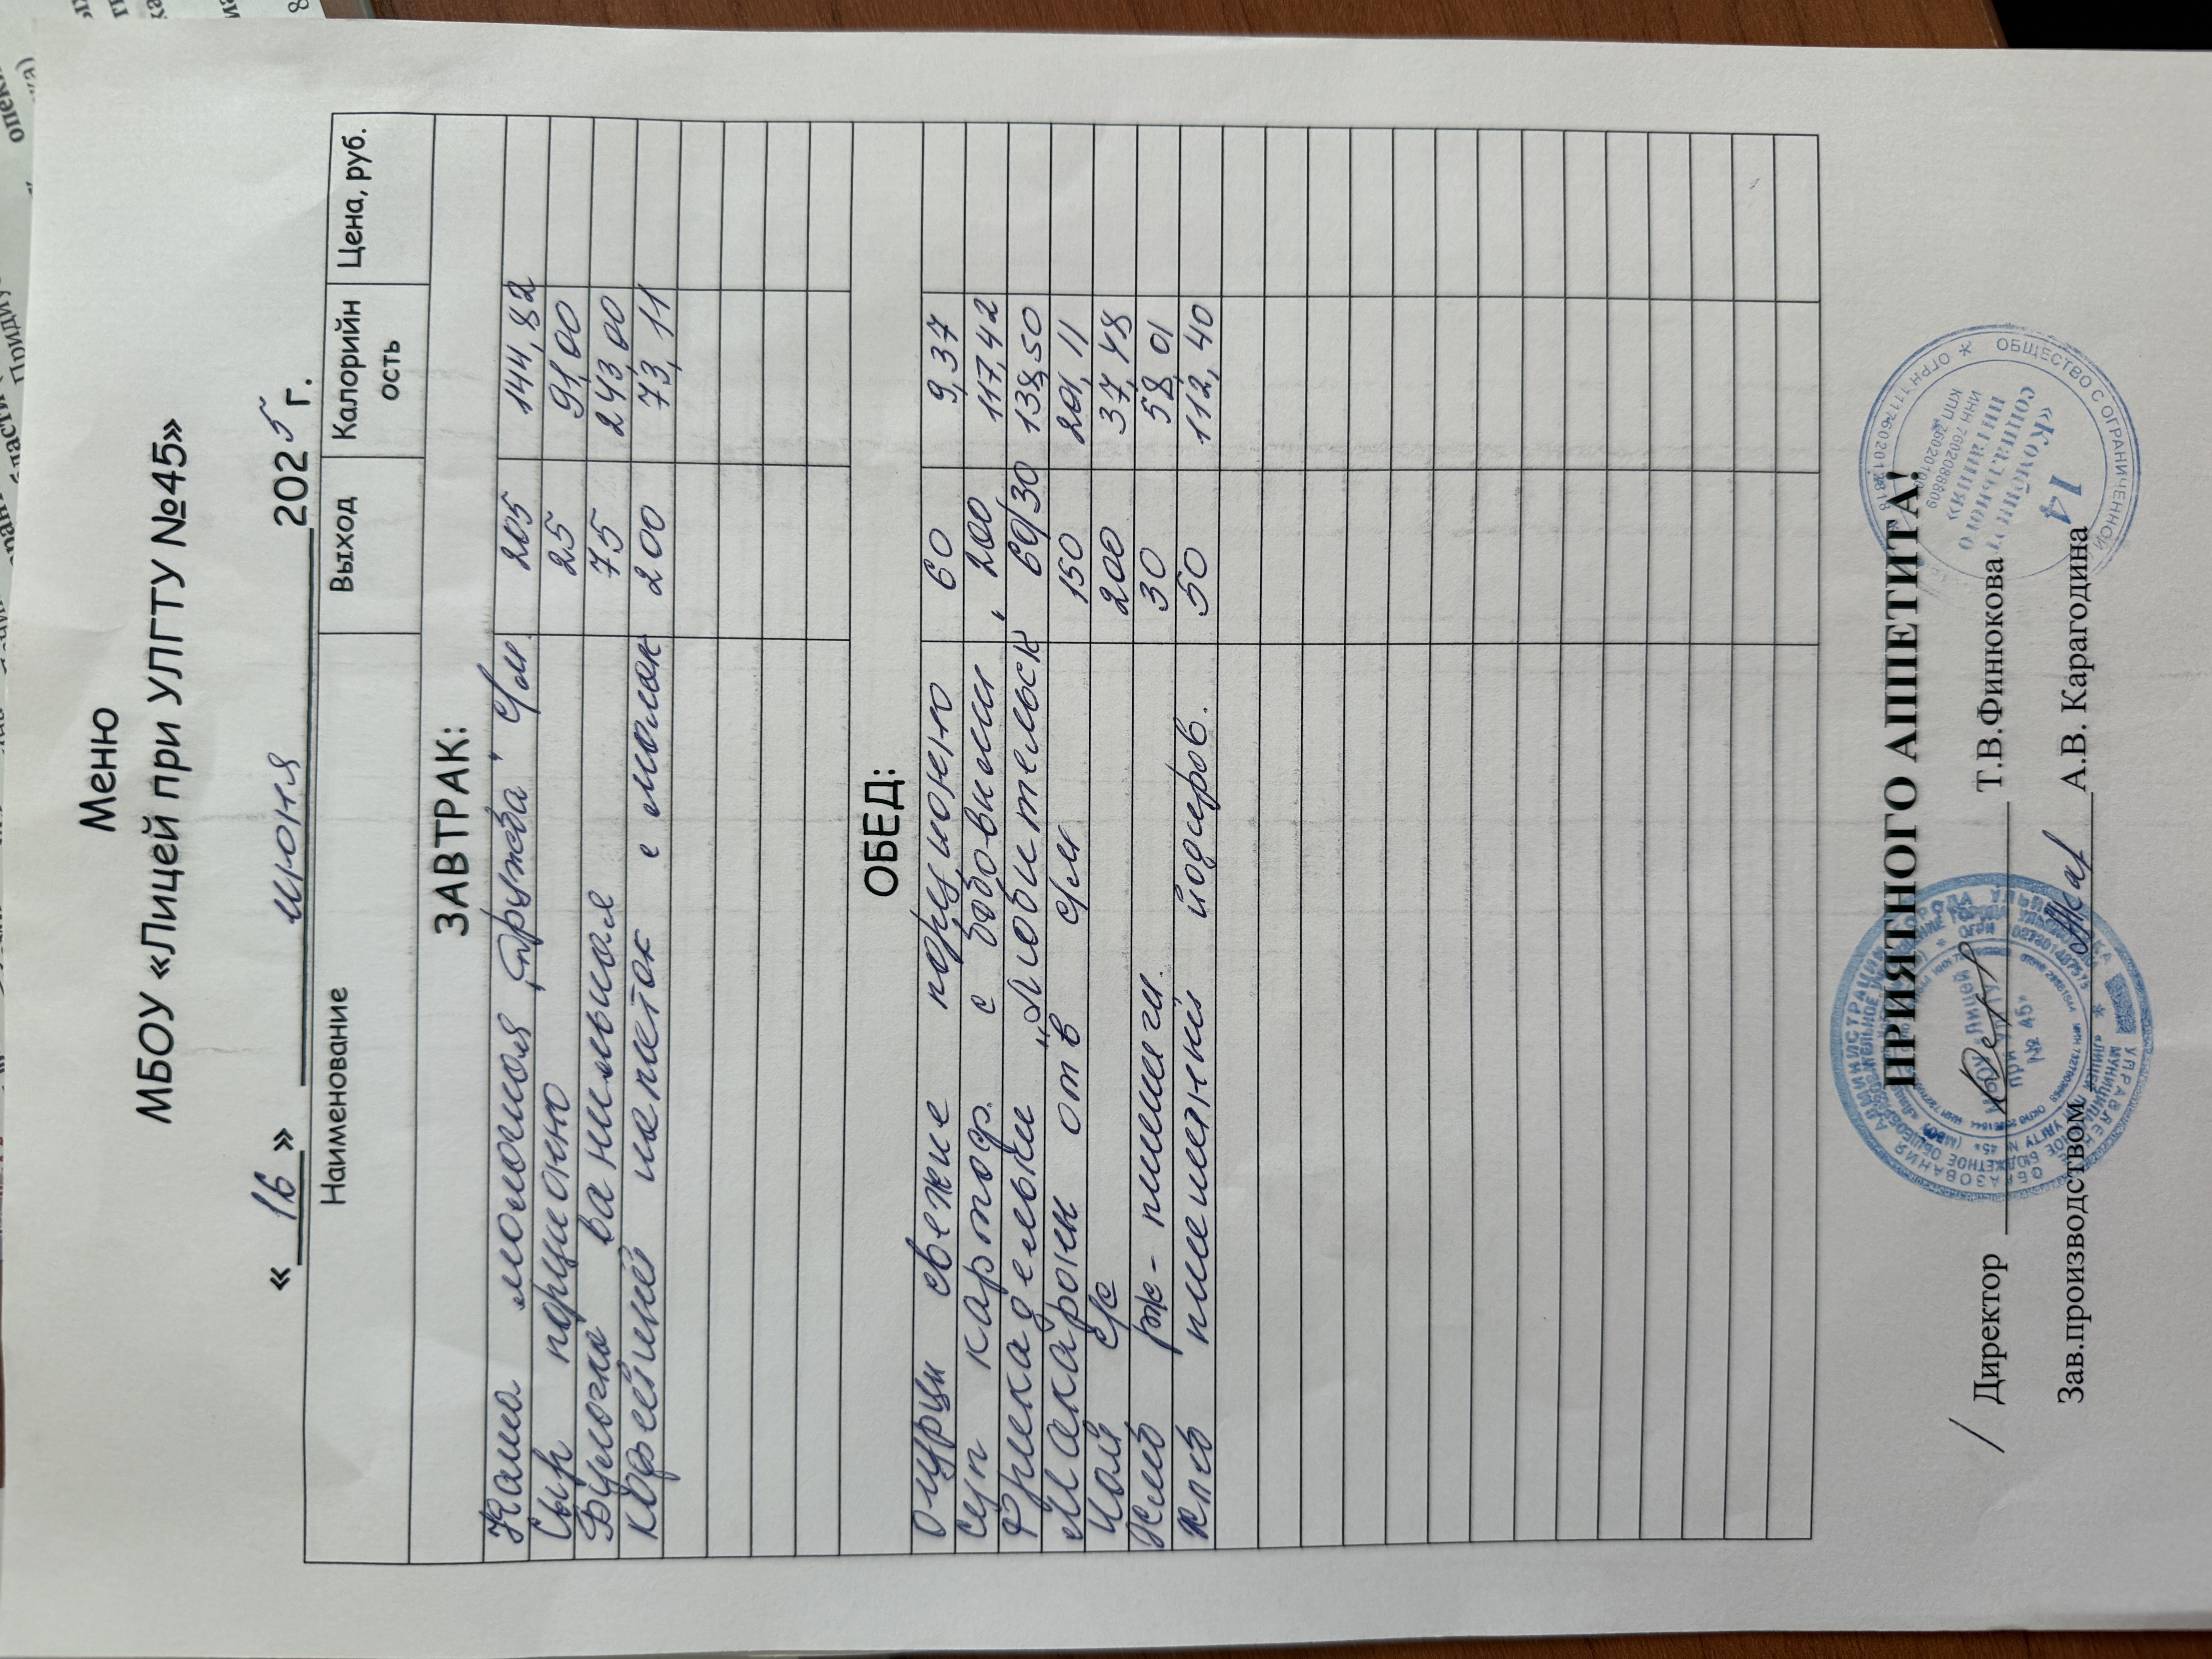 Меню
МБОУ «Лицей при УЛГТУ №45»
« 16 » июня 2025 г.
Наименование Выход Калорийн ость Цена, руб.
ЗАВТРАК:
Каша молочная "Дружба" с/м 205 144,82
Сыр порционно 25 91,00
Булочка ванильная 75 243,00
Кофейный напиток с молок 200 73,11
ОБЕД:
Огурцы свежие порционно 60 9,37
Суп картоф. с бобовыми 200 117,42
Фрикадельки "Любительск 60/30 138,50
Макароны отв с/м 150 201,11
Чай с/с 200 37,48
Хлеб рж-пшен 30 58,01
Хлеб пшеничный йодиров. 50 112,40
ПРИЯТНОГО АППЕТИТА!
/ Директор Т.В.Финюкова
Зав.производством А.В. Карагодина
МБОУ «Лицей при УлГТУ № 45»
ОБЩЕСТВО С ОГРАНИЧЕННОЙ
«Комбинат социального питания»
14
ИНН 7602088609